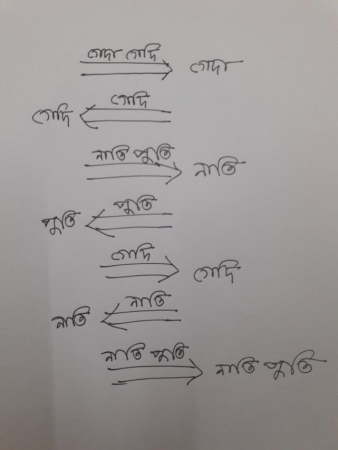 গেদা গেদি গেদা
গেদি গেদি
নাতি পুতি নাতি
পুতি পুতি
গেদি গেদি
নাতি নাতি
নাতি পুতি নাতি পুতি